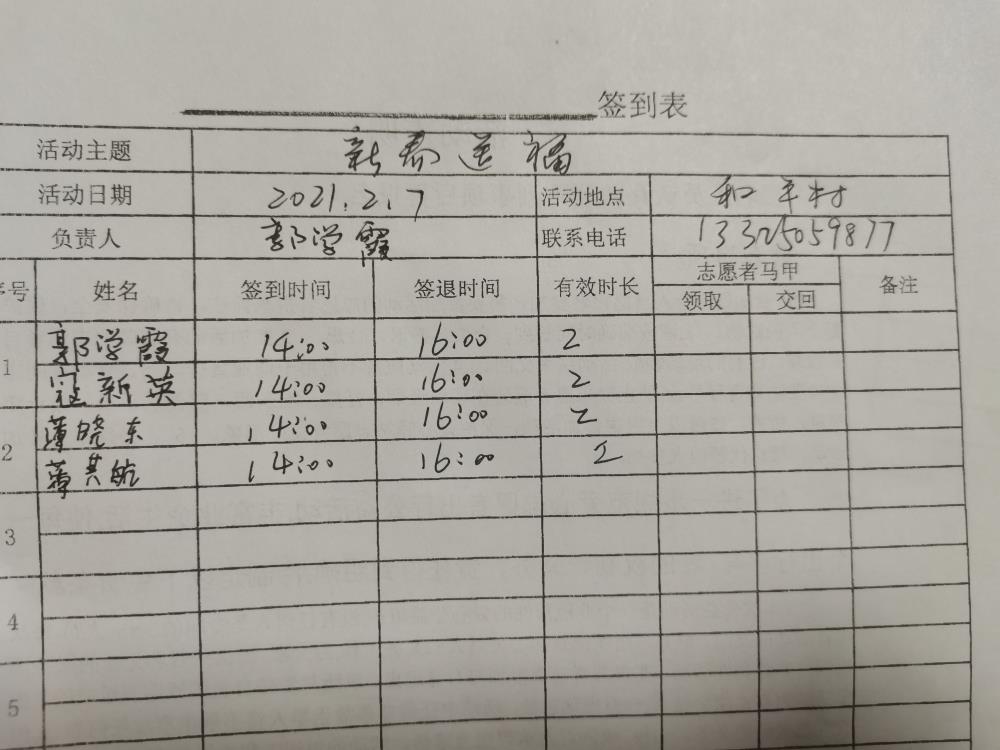 签到表
活动主题 新春送福
活动日期 2021.2.7 活动地点 和平村
负责人 郭学霞 联系电话 13325059877
序号 姓名 签到时间 签退时间 有效时长 志愿者马甲 备注
领取 交回
1 郭学霞 14:00 16:00 2
寇新英 14:00 16:00 2
2 薄晓东 14:00 16:00 2
薄其航 14:00 16:00 2
3
4
5